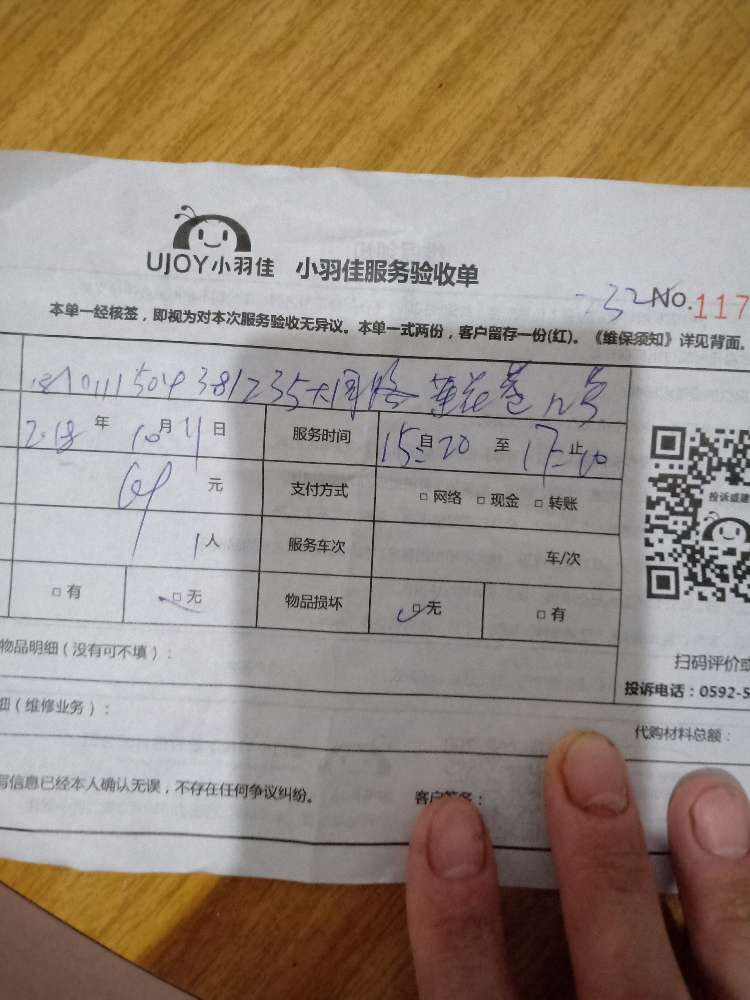 UJOY小羽佳 小羽佳服务验收单
232 No.117
本单一经核签，即视为对本次服务验收无异议。本单一式两份，客户留存一份(红)。《维保须知》详见背面。
12号
年 10月11日 服务时间 15自20 至 17止
元 支付方式 □网络 □现金 □转账
投诉或建
1人 服务车次 车/次
□有 □无 物品损坏 □无 □有
物品明细（没有可不填）：
扫码评价或
投诉电话：0592-5
细（维修业务）：
代购材料总额：
写信息已经本人确认无误，不存在任何争议纠纷。 客户签名：